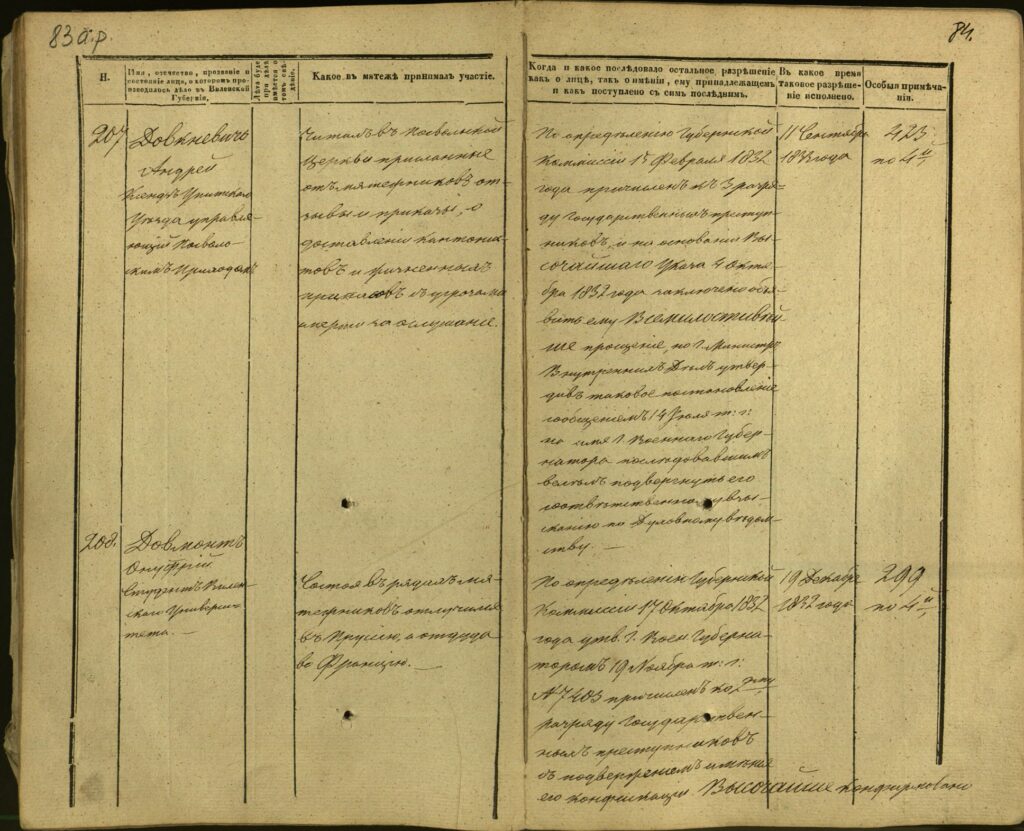 83 а.р.
84.
Н.
Имя, отечество, прозвание и
состояніе лица, о которомъ про-
изводилось дѣло въ Виленской
Губерніи,
Какое въ мятежѣ принималъ участіе.
Когда и какое послѣдовало остальное разрѣшеніе
какъ о лицѣ, такъ о имѣніи, ему принадлежащемъ
и какъ поступлено съ симъ послѣднимъ.
Въ какое время
таковое разрѣше-
ніе исполнено.
Особыя примѣча-
нія.
207
Довкневичъ
Андрей
Ксендзъ Упитскаго
Уѣзда управля-
ющій Посволь-
скимъ Приходомъ
Читалъ въ Посвольской
Церкви присланные
отъ мятежниковъ от-
зывы и приказы, о
доставленіи кантонис-
товъ и
приказовъ съ угрозами
смерти за ослушаніе.
По опредѣленію Губернской
Коммисіи 15 Февраля 1832
года причисленъ къ 3 разря-
ду государственныхъ преступ-
никовъ, и на основаніи Вы-
сочайшаго Указа 4 Октя-
бря 1832 года заключено объя-
вить ему Всемилостивѣй-
шее прощеніе, но Г. Министръ
Внутреннихъ Дѣлъ утвер-
дивъ таковое постановленіе
сообщеніемъ 14 Іюля т: г:
на имя Г. Военнаго Губер-
натора послѣдовавшимъ
велѣлъ подвергнуть его
соотвѣтственному взы-
сканію по Духовному вѣдом-
ству. —
11 Сентября
1833 года
423
по 4й
208.
Довмонтъ
Онуфрій
Студентъ Вилен-
скаго Универси-
тета. —
Состоя въ рядахъ мя-
тежниковъ отлучился
въ Прусію, а оттуда
во Францію. —
По опредѣленію Губернской
Коммисіи 17 Октября 1832
года утв. Г. Воен Губерна-
торомъ 19 Ноября т: г:
№ 7403 причисленъ ко 2му
разряду государствен-
ныхъ преступниковъ
съ подверженіемъ имѣнія
его конфискаціи Высочайше конфирмовано
19 Декабря
1832 года
299
по 4й